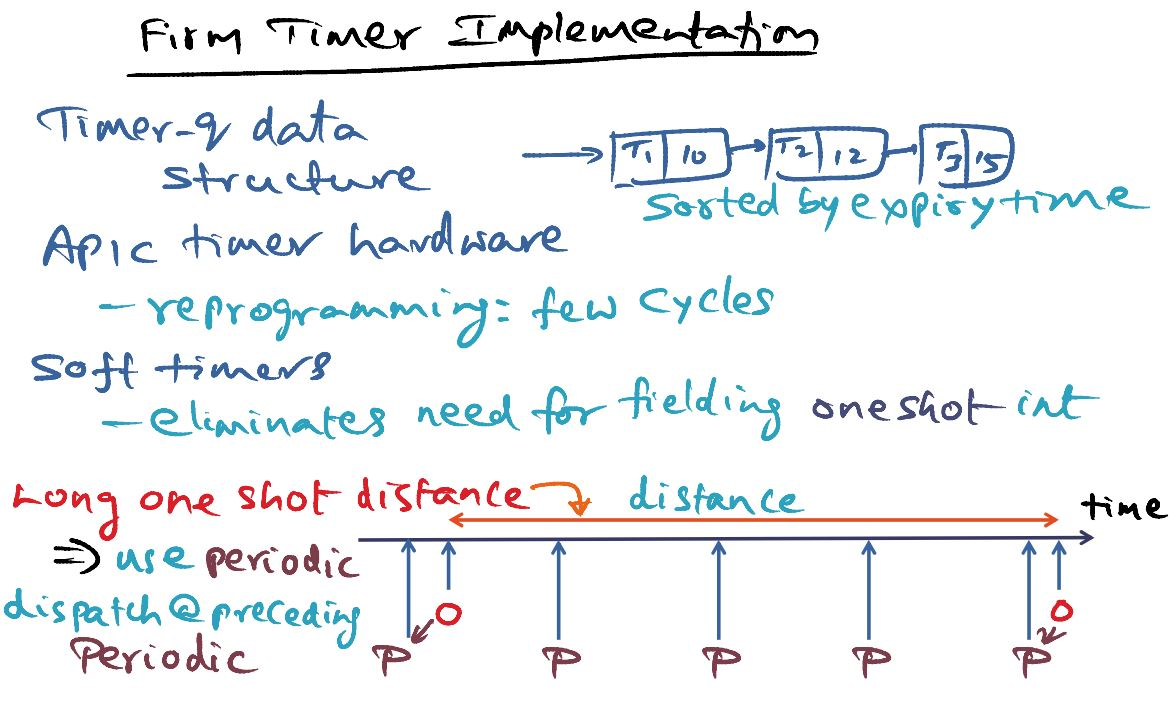 Firm Timer Implementation
Timer-q data
structure
T1 10 T2 12 T3 15
sorted by expiry time
APIC timer hardware
- reprogramming: few cycles
Soft timers
- eliminates need for fielding oneshot int
Long one shot distance distance
time
⇒ use periodic
dispatch @ preceding
Periodic
O O
P P P P P